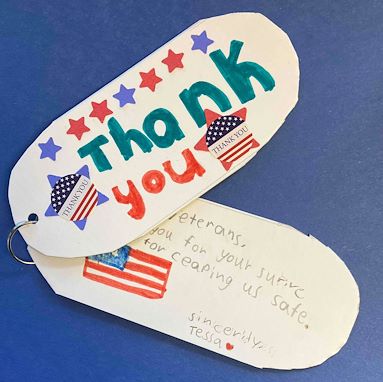 Thank
you
THANK YOU
THANK YOU
veterans,
you for your surirc
for ceaping us safe.
sinceridy,
Tessa